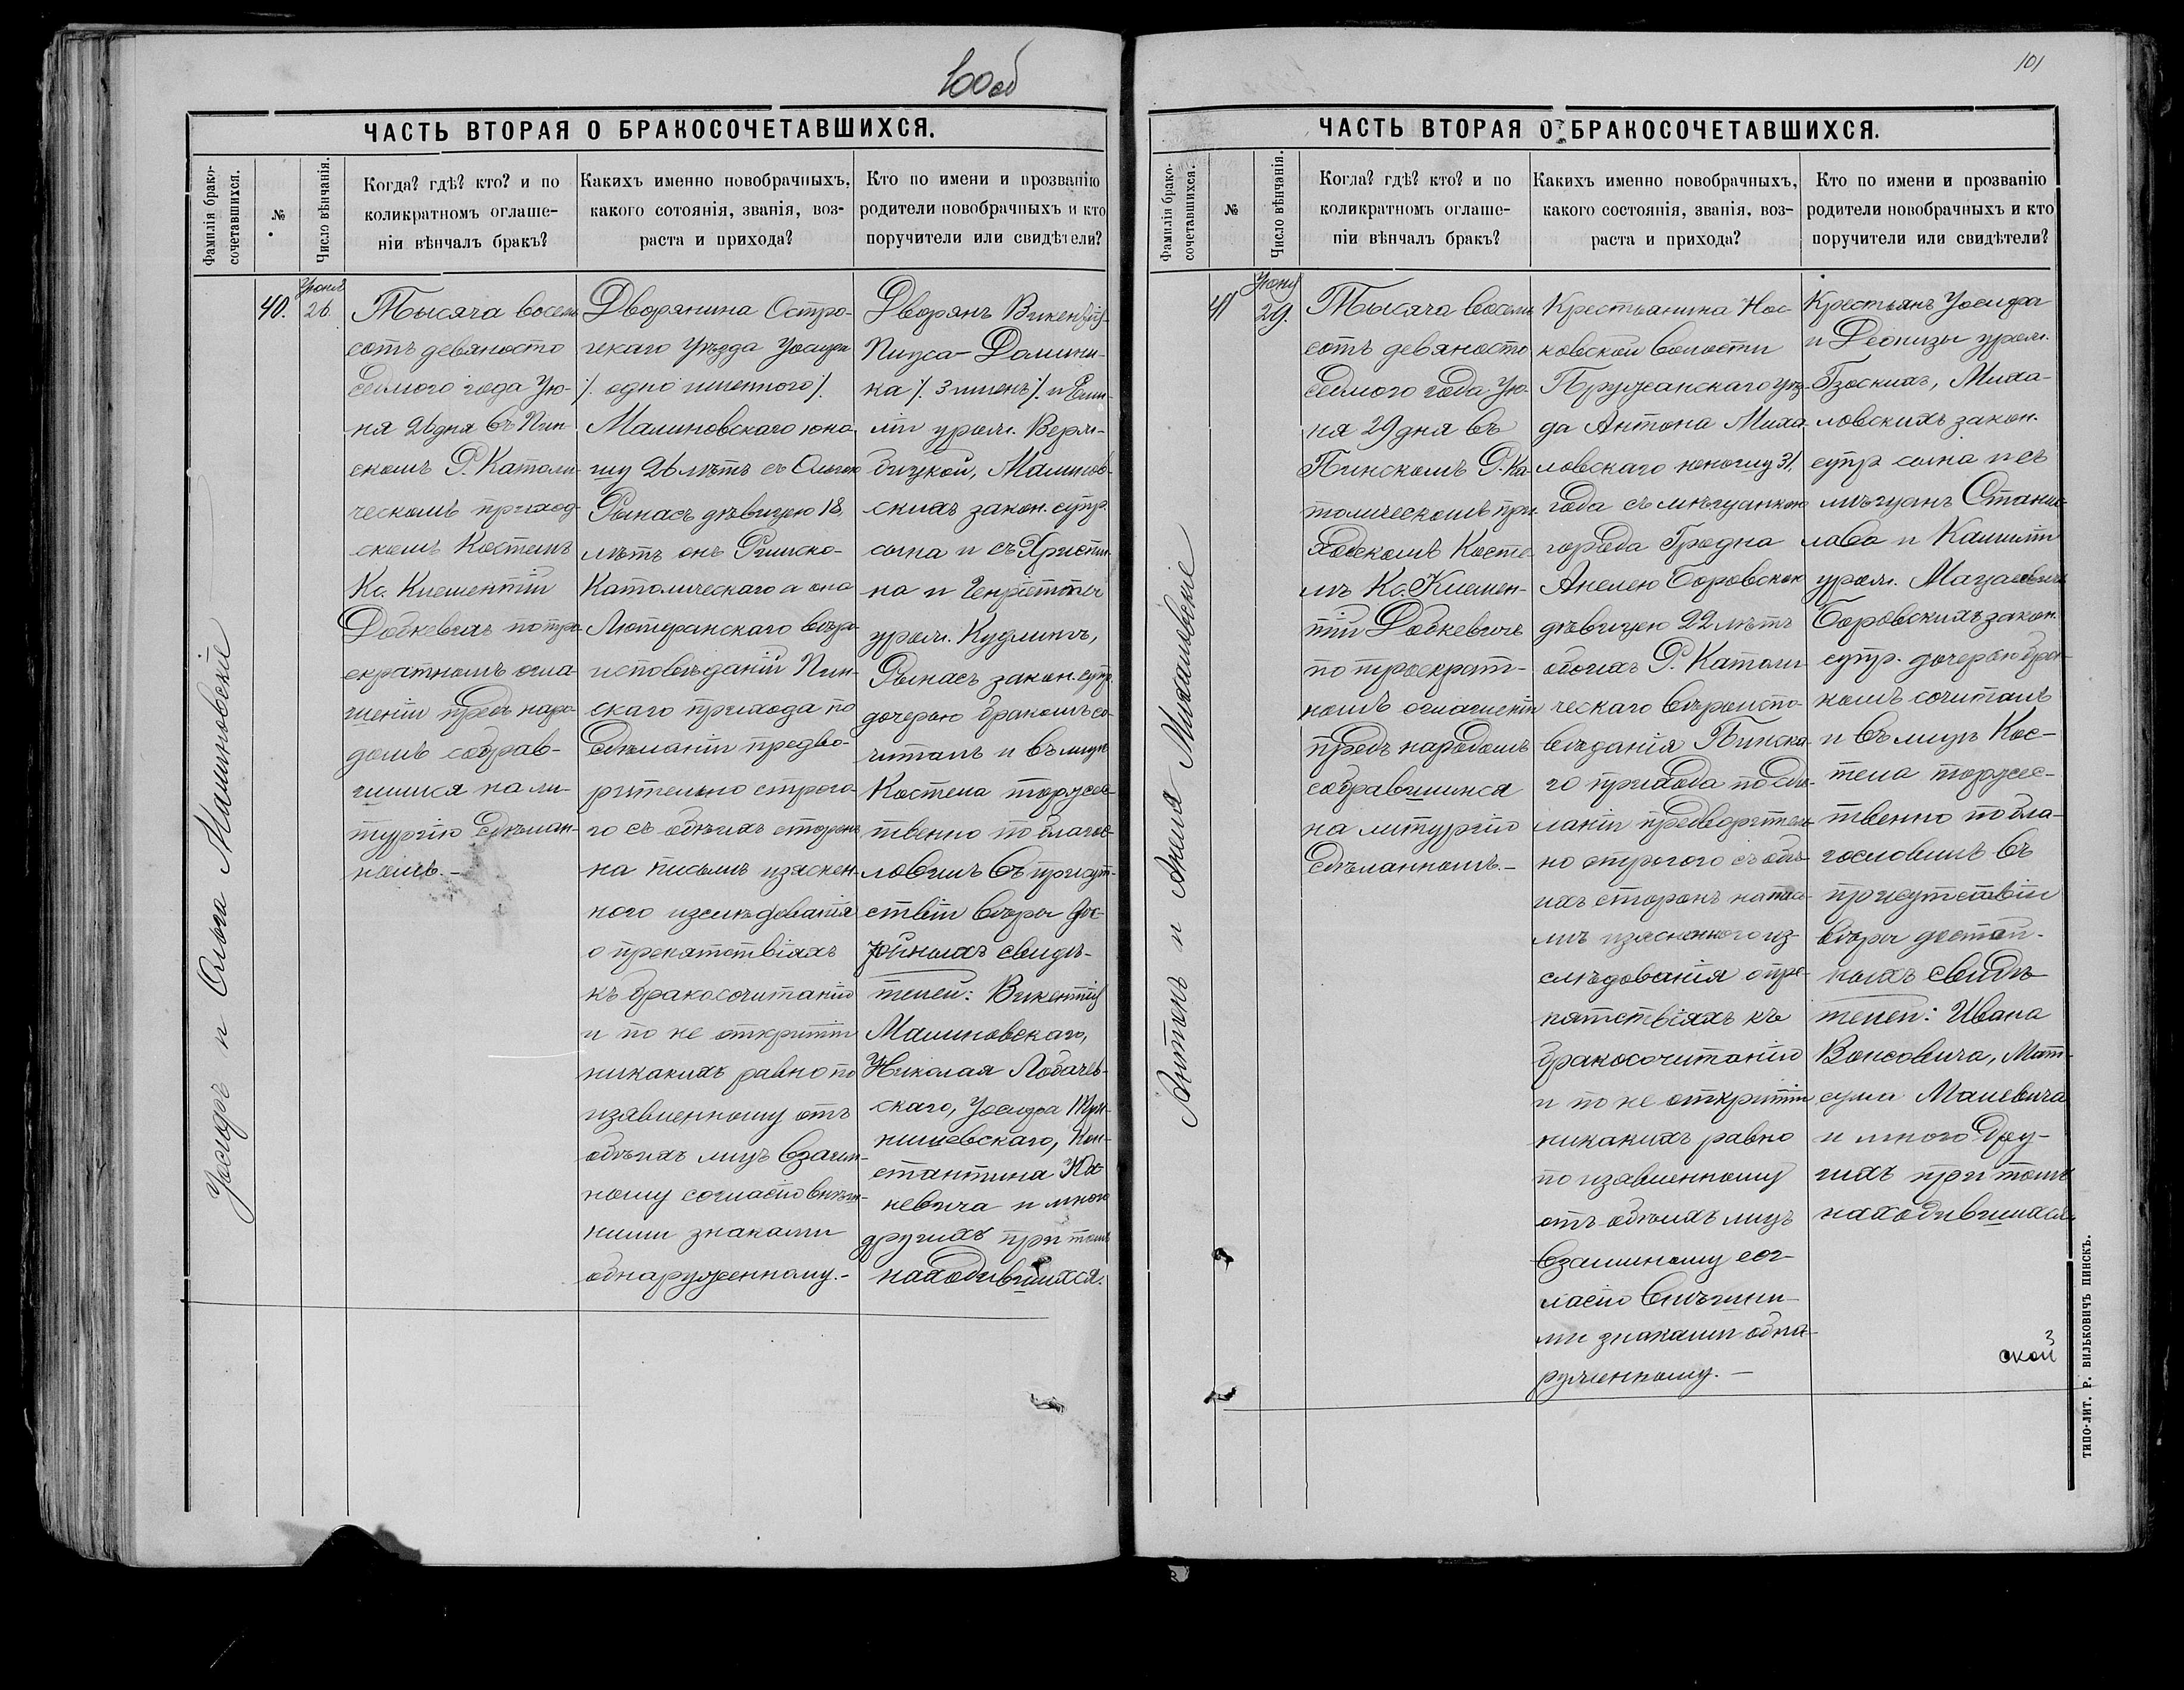 100об
ЧАСТЬ ВТОРАЯ О БРАКОСОЧЕТАВШИХСЯ.
Фамилія брако-
сочетавшихся.
№
Число вѣнчанія.
Когда? гдѣ? кто? и по
коликратномъ оглаше-
ніи вѣнчалъ бракъ?
Какихъ именно новобрачныхъ,
какого сотоянія, званія, воз-
раста и прихода?
Кто по имени и прозванію
родители новобрачныхъ и кто
поручители или свидѣтели?
Іосифъ и Ольга Малиновскіе
40.
Іюня
26.
Тысяча восемь
сотъ девяносто
седмого года Ію-
ня 26 дня въ Пин
скомъ Р. Католи-
ческомъ приход
скомъ Костелѣ
Кс. Климентій
по тро-
екратномъ огла-
шеніи предъ наро-
домъ собрав-
шимся на ли-
тургію сдѣлан-
номъ.-
Дворянина Остро-
гскаго Уѣзда Іосифа
/. одно именного /.
Малиновскаго юно
шу 26 лѣтъ съ Ольгою
Рынасъ дѣвицею 18
лѣтъ онъ Римско-
Католическаго а она
Лютеранскаго вѣро-
исповѣданій Пин-
скаго прихода по
сдѣланіи предво-
рительно строго-
го съ обѣихъ сторонъ
на письмѣ изяснен-
ного изслѣдованія
о препятствіяхъ
къ бракосочитанію
и по не откритіи
никакихъ равно по
изявленному отъ
обѣихъ лицъ взаим-
ному согласію внѣш-
ними знаками
обнаруженному.-
Дворянъ Викентія
Доминика-
ка /. 3 именъ /. и Еми-
ліи урож.
Малинов-
скихъ закон. супр.
сына и съ Христіа-
на и Генріетты
урож.
Рынасъ закон. супр.
дочерью бракомъ со-
читалъ и въ лицѣ
Костела торжес-
твенно поблагос-
ловилъ въ присут-
ствіи вѣры дос-
тойныхъ свидѣ-
телей: Викентія
Малиновскаго,
Николая Лобачев-
скаго, Іосифа
Кон-
стантина
и много
другихъ при томъ
находившихся.
101
ЧАСТЬ ВТОРАЯ О БРАКОСОЧЕТАВШИХСЯ.
Фамилія брако-
сочетавшихся.
№
Число вѣнчанія.
Когда? гдѣ? кто? и по
коликратномъ оглаше-
ніи вѣнчалъ бракъ?
Какихъ именно новобрачныхъ,
какого состоянія, званія, воз-
раста и прихода?
Кто по имени и прозванію
родители новобрачныхъ и кто
поручители или свидѣтели?
Антонъ и Анеля Михаловскіе
41
Іюня
29.
Тысяча восемь
сотъ девяносто
седмого года Ію-
ня 29 дня въ
Пинскомъ Р. Ка-
толическомъ при-
ходскомъ Косте-
лѣ Кс. Климен-
тій
по троекрат-
номъ оглашеніи
предъ народомъ
собравшимся
на литургію
сдѣланномъ.-
Крестьянина Нос-
ковской волости
Пружанскаго уѣз-
да Антона Миха-
ловскаго юношу 31
года съ мѣщанкою
города Гродна
Анелею Боровскою
дѣвицею 22 лѣтъ
обоихъ Р. Католи-
ческаго вѣроиспо-
вѣданія Пинска-
го прихода по сдѣ-
ланіи предворитель-
но строгого съ обѣ-
ихъ сторонъ на пись-
мѣ изясненного из-
слѣдованія о пре-
пятствіяхъ къ
бракосочитанію
и по не откритіи
никакихъ равно
по изявленному
отъ обѣихъ лицъ
взаимному сог-
ласію внѣшни-
ми знаками обна-
руженному.-
Крестьянъ Іосифа
и Деонизы урож.
Миха-
ловскихъ закон.
супр. сына и съ
мѣщанъ Станис-
лава и Камиліи
урож.
Боровскихъ закон.
супр. дочерью бра-
комъ сочиталъ
и въ лицѣ Кос-
тела торжес-
твенно побла-
гословилъ въ
присутствіи
вѣры достой-
ныхъ свидѣ-
телей: Ивана
Вонсовича,
Малевича
и много дру-
гихъ при томъ
находившихся.
ской
ТИПО-ЛИТ. Р. ВИЛЬКОВИЧЪ ПИНСКЪ.